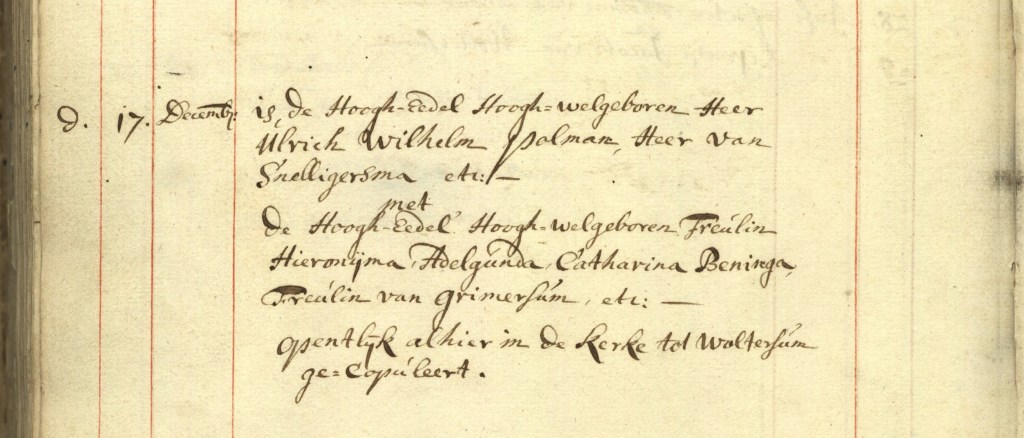 d. 17. Decemb: is, de Hoogh-Eedel Hoogh-welgeboren Heer
Ulrich Wilhelm Polman, Heer van
Snelligersma etc: —
met
de Hoogh-Eedel Hoogh-welgeboren Freúlin
Hieronijma, Adelgúnda, Catharina Beninga,
Freúlin van Grimersúm, etc: —
opentlijk alhier in de Kerke tot Woltersúm
ge=Copúleert.